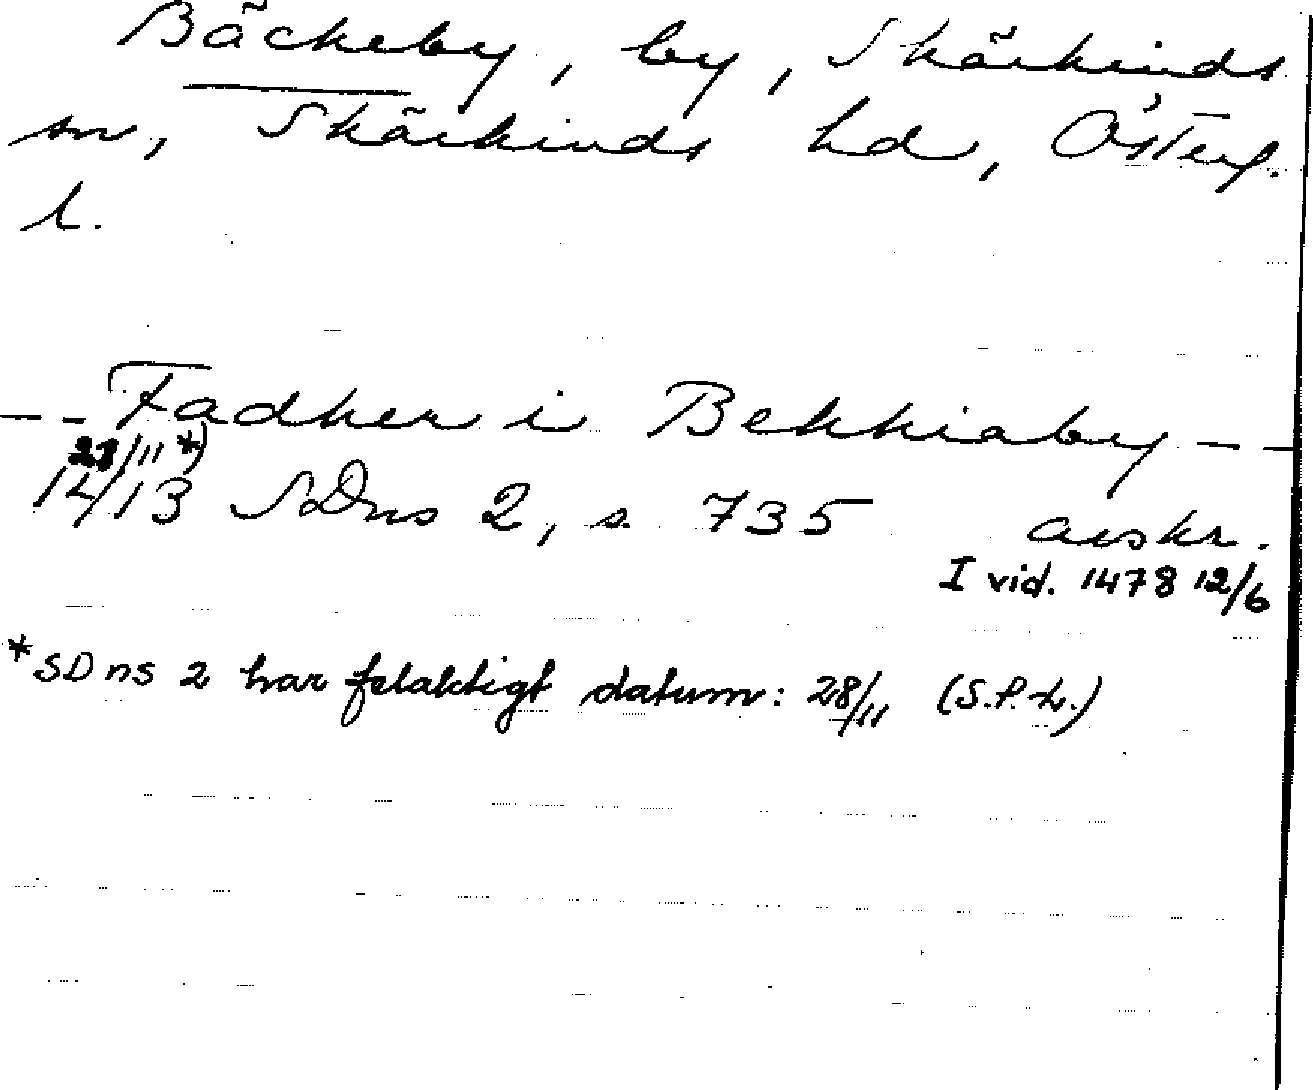 Bäckeby, by, Skärkinds
sn, Skärkinds hd, Österg.
l.
-- Fadher i Bekkiaby --
/11 *)
1413 SDns 2, s. 735 avskr.
I vid. 1478 12/6
*SDns 2 har felaktigt datum: 28/11 (S.P.L.)